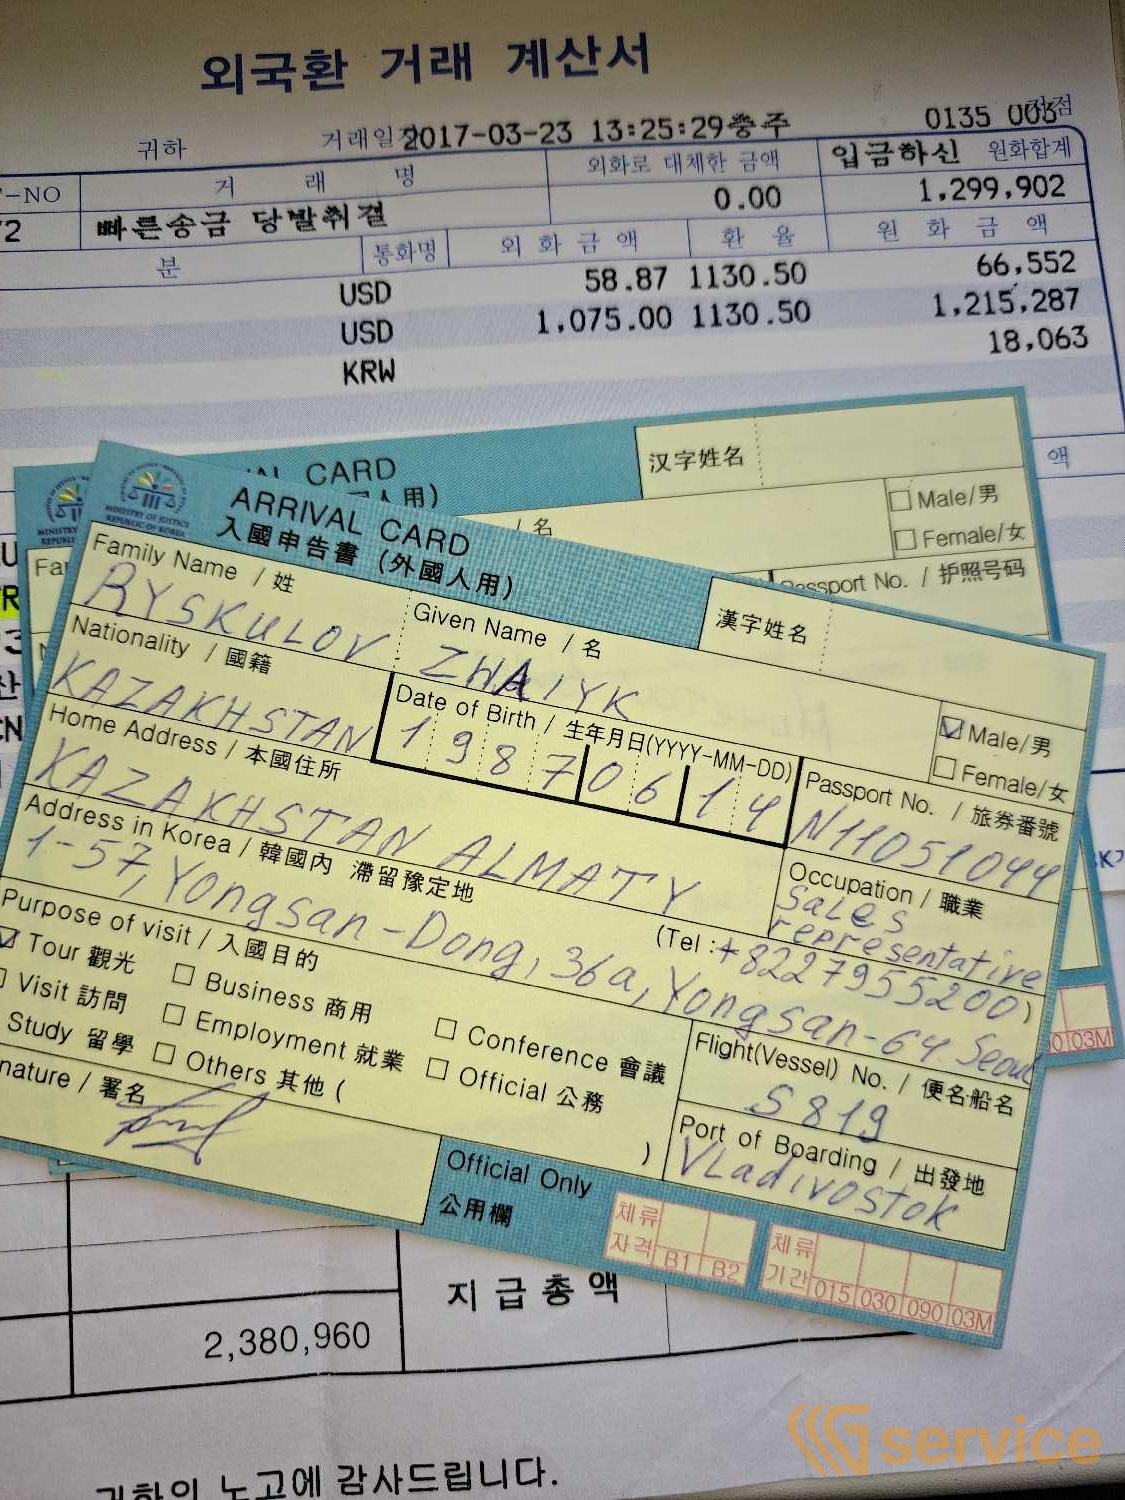 외국환 거래 계산서
귀하 거래일자 2017-03-23 13:25:29 충주 0135 003 지점
-NO 거 래 명 외화로 대체한 금액 입금하신 원화합계
72 빠른송금 당발취결 0.00 1,299,902
분 통화명 외 화 금 액 환 율 원 화 금 액
USD 58.87 1130.50 66,552
USD 1,075.00 1130.50 1,215,287
KRW 18,063
액
CARD
人用)
汉字姓名
/ 名
Male/男
Female/女
Passport No. / 护照号码
MINISTRY OF JUSTICE
REPUBLIC OF KOREA
ARRIVAL CARD
入國申告書 (外國人用)
漢字姓名
Family Name / 姓
RYSKULOV
Given Name / 名
ZHAIYK
Male/男
Female/女
Nationality / 國籍
KAZAKHSTAN
Date of Birth / 生年月日(YYYY-MM-DD)
1 9 8 7 0 6 1 4
Passport No. / 旅券番號
N11051044
Home Address / 本國住所
KAZAKHSTAN ALMATY
Occupation / 職業
Sales representative
Address in Korea / 韓國內 滯留豫定地
(Tel :+8227955200)
1-57, Yongsan-Dong, 36a, Yongsan-64 Seoul
Purpose of visit / 入國目的
Tour 觀光
Business 商用
Conference 會議
Visit 訪問
Employment 就業
Official 公務
Study 留學
Others 其他 (
)
Flight(Vessel) No. / 便名·船名
S819
Port of Boarding / 出發地
Vladivostok
nature / 署名
Official Only
公用欄
체류 자격 B1 B2
체류 기간 015 030 090 03M
03M
지 급 총 액
2,380,960
귀하의 노고에 감사드립니다.
service